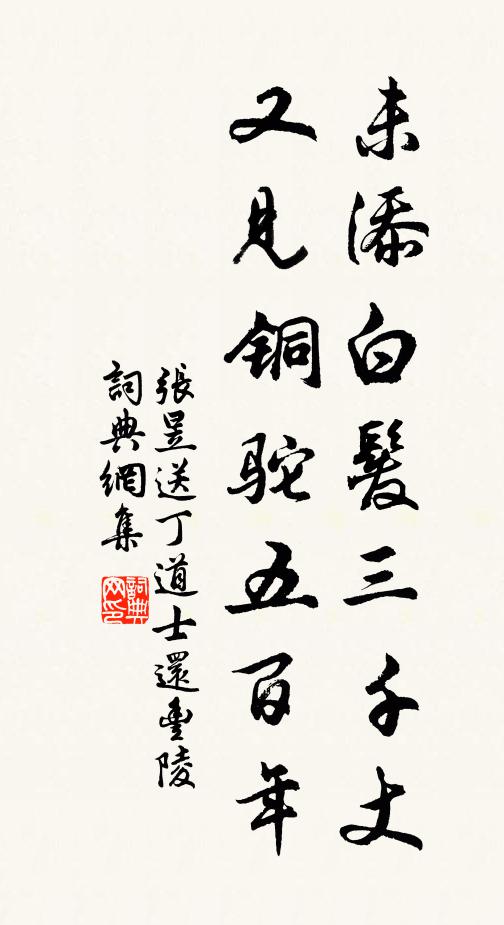 未添白髮三千丈
又見銅駝五百年
張昱送丁道士還豐陵
詞典網集
詞典網印